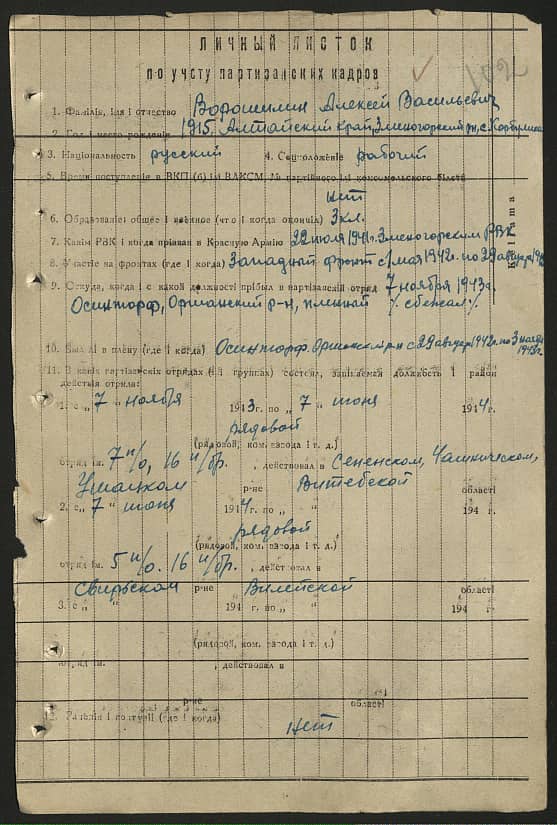 ЛИЧНЫЙ ЛИСТОК
по учсту партизанских кадров
1. Фамілія, імя і отчество Ворошилин Алексей Васильевич
2. Год і место рождения 1915, Алтайский край, Змеиногорский рн, с.
3. Національность русский 4. Соцположеніе рабочий
5. Время поступленія в ВКП (б) ілі ВЛКСМ, № партійного ілі комсомольского білета
нет
6. Образованіе общее і военное (что і когда окончіл) 3 кл.
7. Какім РВК і когда прізван в Красную Армію 22 июля 1941 г. Змеиногорским РВК
8. Участіе на фронтах (где і когда) Западный фронт с 1 мая 1942 г. по 29 августа
9. Откуда, когда і с какой должності прібыл в партізанскій отряд 7 ноября 1943 г.
Осинторф, Оршанский р-н, пленный /сбежал/
10. Был лі в плену (где і когда) Осинторф Оршанский рн с 29 август 1942 г. по 3 ноября
1943 г.
11. В какіх партізанскіх отрядах (і группах) состоял, занімаемая должность і район
действія отряда:
1. с „ 7 “ ноября 1943 г. по „ 7 “ июня 1944 г.
рядовой
(рядовой, ком. взвода і т. д.)
отряд ім. 7 п/о, 16 п/бр. , действовал в Сененском, Чашническом,
Ушацком р-не Витебской області
2. с „ 7 “ июня 1944 г. по „ “ 194 г.
рядовой
(рядовой, ком. взвода і т. д.)
отряд ім. 5 п/о. 16 п/бр. , действовал в
Свирьском р-не Вилейской області
3. с „ “ 194 г. по „ “ 194 г.
(рядовой, ком. взвода і т. д.)
отряд ім. , действовал в
р-не області
12. Раненія і контузіі (где і когда)
нет